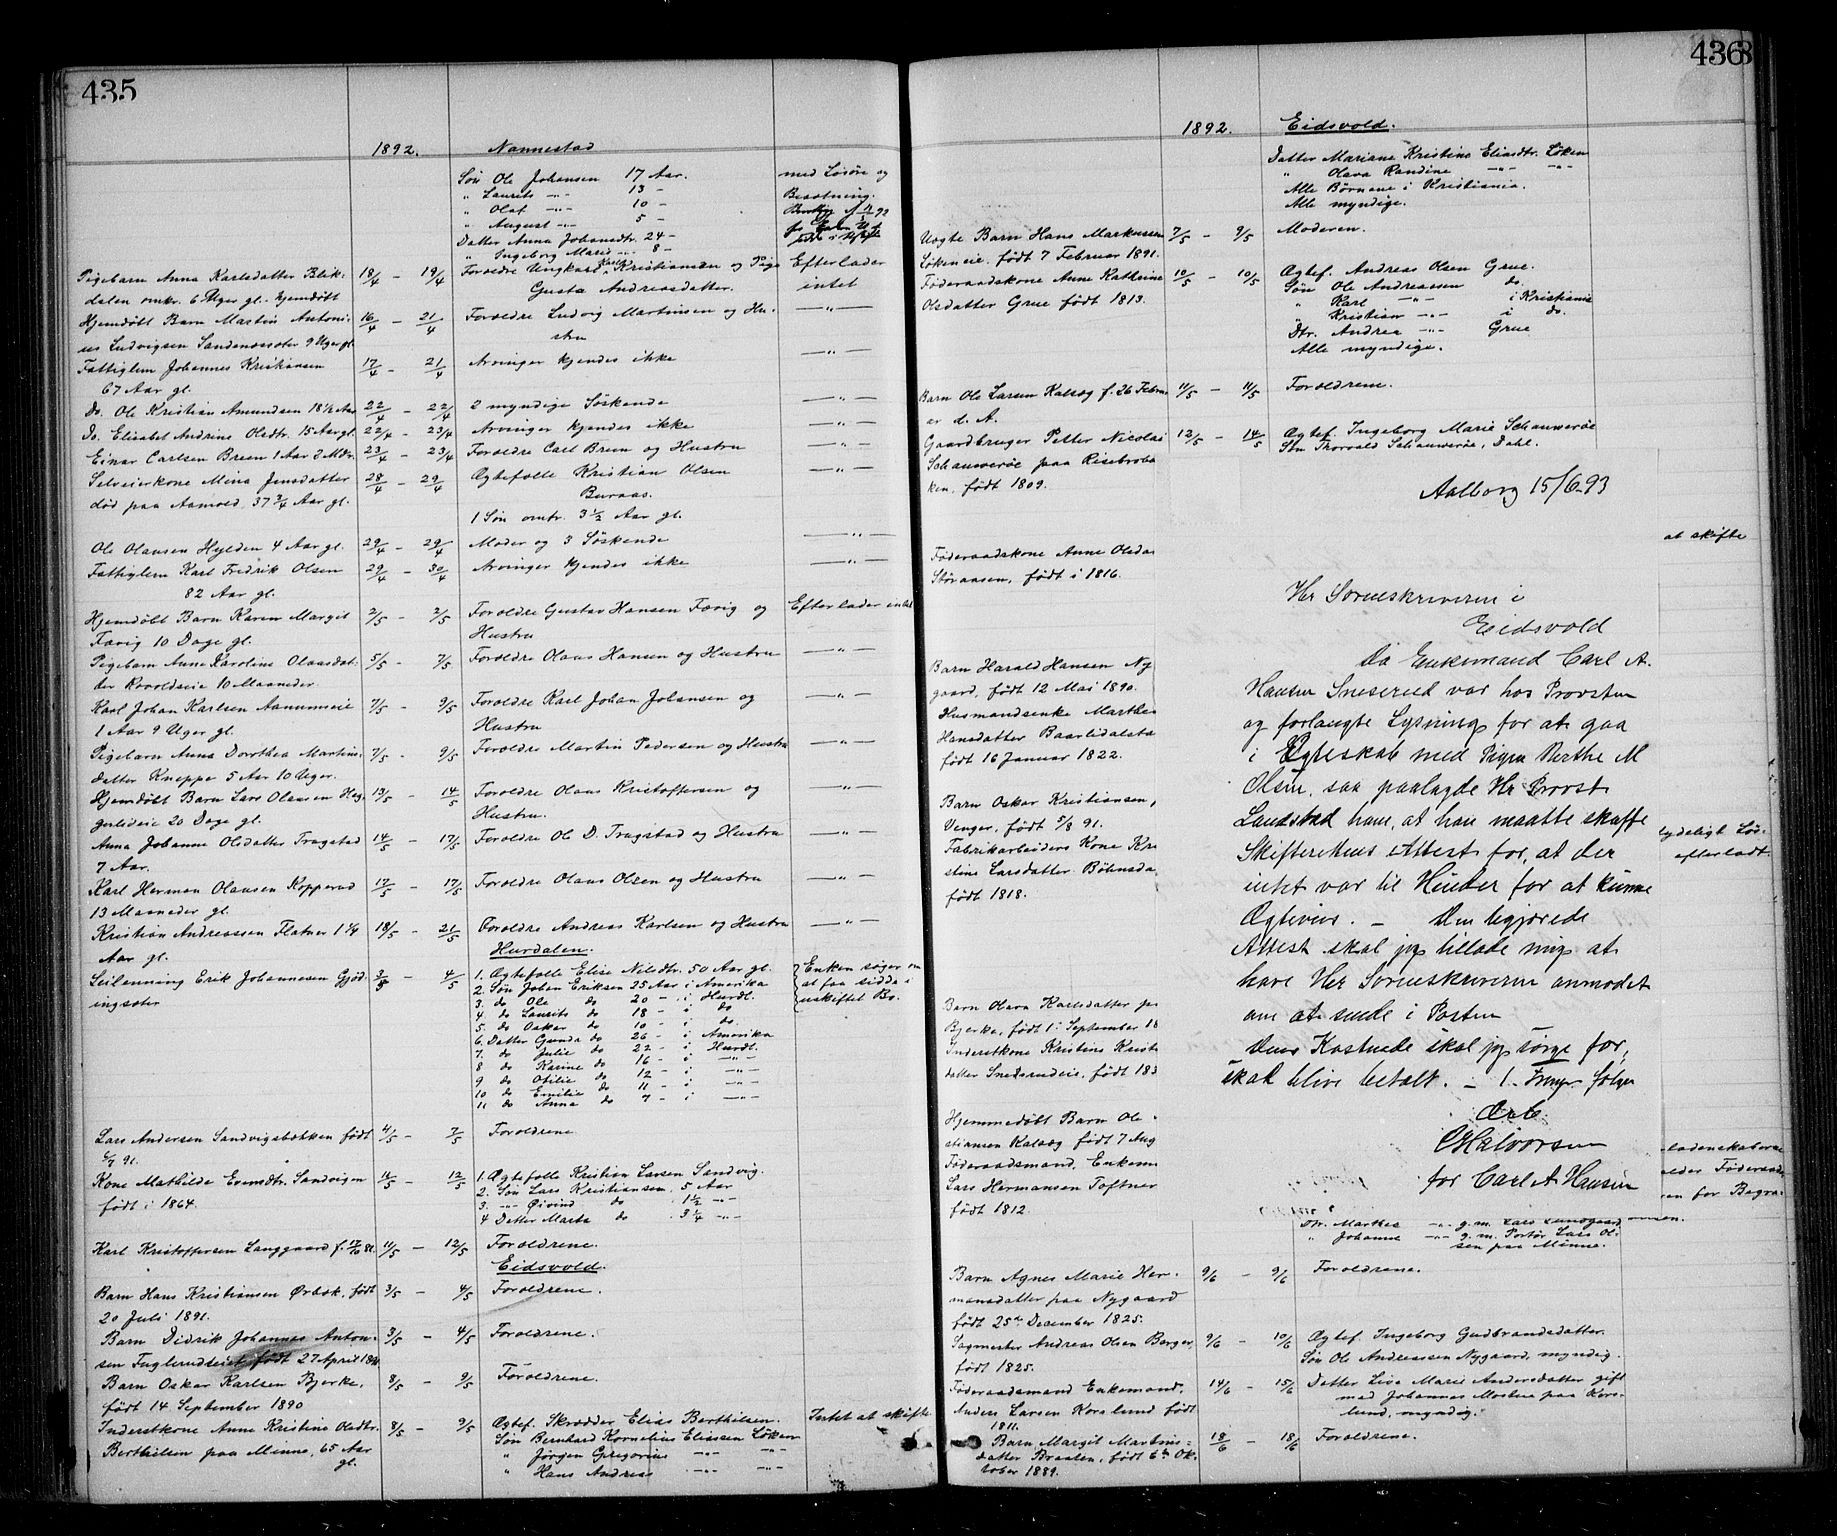 435
1892. Nannestad
Søn Ole Johansen 17 Aar. med Løsøre og
" Laurits —"— 13 — Besætning.
" Olaf —"— 10 —
" August —"— 5 —
Datter Anna Johansdtr. 24 —
" Ingeborg Marie —"— 8 —
Pigebarn Anna Karlsdatter Blik- 18/4 — 19/4 Forældre Ungkarl Kristiansen og Pige Efterlader
dalen omkr. 6 Uger gl. hjemdøbt Gusta Andreasdatter. intet
Hjemdøbt Barn Martin Antoni- 16/4 — 21/4 Forældre Ludvig Martinsen og Hu- —"—
us Ludvigsen Sandenossæter 9 Uger gl. stru
Fattiglem Johannes Kristiansen 17/4 — 21/4 Arvinger kjendes ikke —"—
67 Aar gl.
Do. Ole Kristian Amundsen 18 1/2 Aar 22/4 — 22/4 2 myndige Søskende —"—
Do. Elisabet Andrine Olsdtr. 15 Aar gl. 22/4 — 23/4 Arvinger kjendes ikke —"—
Einar Carlsen Breen 1 Aar 2 Mdr. 23/4 — 23/4 Forældre Carl Breen og Hustru —"—
Selveierkone Mina Jensdatter 28/4 — 29/4 Ægtefælle Kristian Olsen —"—
død paa Aamold 37 3/4 Aar gl. Buraas.
1 Søn omtr. 3 1/2 Aar gl.
Ole Olausen Hylden 4 Aar gl. 29/4 — 29/4 Moder og 3 Søskende —"—
Fattiglem Karl Fredrik Olsen 29/4 — 30/4 Arvinger kjendes ikke —"—
82 Aar gl.
Hjemdøbt Barn Karen Margit 2/5 — 2/5 Forældre Gustav Hansen Færig og Efterlader intet
Færig 10 Dage gl. Hustru
Pigebarn Anne Karoline Olausdat- 5/5 — 7/5 Forældre Olaus Hansen og Hustru —"—
ter Rovoldseie 10 Maaneder
Karl Johan Karlsen Aanumseie 7/5 — 9/5 Forældre Karl Johan Johansen og —"—
1 Aar 9 Uger gl. Hustru
Pigebarn Anna Dorthea Martins- 7/5 — 9/5 Forældre Martin Pedersen og Hustru —"—
datter Kneppe 5 Aar 10 Uger.
Hjemdøbt Barn Lars Olausen Heg- 13/5 — 14/5 Forældre Olaus Kristoffersen og —"—
gerlieie 20 Dage gl. Hustru.
Anna Johanne Olsdatter Tragstad 14/5 — 17/5 Forældre Ole D. Tragstad og Hustru —"—
7 Aar.
Karl Herman Olausen Kopperud 17/5 — 17/5 Forældre Olaus Olsen og Hustru —"—
13 Maaneder gl.
Kristian Andreassen Flatner 1 1/4 18/5 — 21/5 Forældre Andreas Karlsen og Hustru —"—
Aar gl. Hurdalen.
Leilenning Erik Johannesen Gjød- 3/5 — 4/5 1. Ægtefælle Elise Nilsdtr. 50 Aar gl. Enken søger om
ingsæter 2. Søn Johan Eriksen 25 Aar i Amerika at faa sidde i
3. do Ole do 20 — i Hurdl. uskiftet Bo.
4. do Laurits do 18 — i do
5. do Oskar do 10 — i do.
6. Datter Gunda do 26 — i Amerika
7. do Julie do 22 — i Hurdl.
8 do Karine do 16 — i —"—
9 do Otilie do 12 — i —"—
10 do Emilie do 11 — i —"—
11 do Anna do 7 — i —"—
Lars Andersen Sandvigsbakken født 4/5 — 7/5 Forældrene
6/7 91.
Kone Mathilde Evensdtr. Sandvigen 4/5 — 12/5 1. Ægtefælle Kristian Larsen Sandvig.
født i 1864. 2. Søn Lars Kristiansen, 5 Aar
3. —"— Øivind do 1 1/2 —"—
4 Datter Marta do 3 1/4 —"—
Karl Kristoffersen Langgaard f. 11/5 — 12/5 Forældrene.
Eidsvold.
Barn Hans Kristiansen Ørbæk, født 3/5 — 4/5 Forældrene.
20 Juli 1891.
Barn Didrik Johannes Anton- 3/5 — 4/5 Forældrene.
sen Fuglerudseiet født 27 April
Barn Oskar Karlsen Bjerke, 8/5 — 9/5 Forældrene.
født 14. September 1890
Inderstkone Anne Kristine Olsdtr. 8/5 — 9/5 Ægtef. Skrædder Elias Berthilsen. Intet at skifte
Berthilsen paa Minne, 65 Aar Søn Bernhard Kornelius Eliassen Løken
gl. " Jørgen Gregorius —"— —"—
" Hans Andreas —"— —"—
436
1892. Eidsvold.
Datter Mariane Kristine Eliasdtr. Løken
" Olava Randine —"— —"—
Alle Børnene i Kristiania.
Alle myndige.
Uægte Barn Hans Markussen 7/5 — 9/5 Moderen.
Løkeneie. født 7 Februar 1891.
Føderaadskone Anne Kathrine 10/5 — 10/5 Ægtef. Andreas Olsen Grue.
Olsdatter Grue født 1813. Søn Ole Andreassen do.
" Karl —"— i Kristiania
" Kristian —"— i do.
Dtr. Andrea —"— Grue
Alle myndige.
Barn Ole Larsen Kalsæg f. 26 Febru- 11/5 — 11/5 Forældrene.
ar d. A.
Gaardbruger Petter Nicolai 12/5 — 14/5 Ægtef. Ingeborg Marie Schauwerøe
Schauwerøe paa Risebroba Søn Thorvald Schauwerøe, Dahl.
ken, født 1809.
Aalborg 15/6-93
at skifte
Føderaadskone Anne Olsda
Støraasen, født i 1816.
Hr Sorenskriveren i
Eidsvold
Da Enkemand Carl A.
Hansen Snesrud var hos Provsten
og forlangte Lysning for at gaa
i Ægteskab med Pigen Berthe M
Olsen, saa paalagde Hr Provst
Landstad ham, at han maatte skaffe
Skifterettens Attest for, at der
intet var til Hinder for at kunne
Ægtevies. — Den begjærede
Attest skal jeg tillade mig at
have Hr Sorenskriveren anmodet
om at sende i Posten
Dens Kostende skal jeg sørge for,
skal blive betalt. — 1. Frmrk følger
Ærb.
CHalvorsen
for Carl A Hansen
Barn Harald Hansen Ny
gaard, født 12 Mai 1890.
Husmandsenke Marthe
Hansdatter Baarlidalsta
født 16 Januar 1822.
Barn Oskar Kristiansen,
Venger, født 5/8 91.
Fabrikarbeiders Kone Kri
stine Larsdatter Bøhnsda
født 1818.
ydeligt Løs-
efterladt.
Barn Olava Karlsdatter pa
Bjerke, født 1 September 18
Inderstkone Kristine Krist
datter Snedsrudeie, født 183
Hjemmedøbt Barn Ole
stiansen Kalsæg født 7 Aug
Føderaadsmand, Enkem
Lars Hermansen Toftner
født 1812.
ladenskaberne
older Føderaads
en for Begra-
Dtr. Marthea —"— g. m. Lars Lundgaard
" Johanne —"— g. m. Portør Lars Ol-
sen paa Minne.
Barn Agnes Marie Her- 9/6 — 9/6 Forældrene.
mansdatter paa Nygaard
født 25de December 1825.
Sagmester Andreas Olsen Berger, 9/6 — 10/6 Ægtef. Ingeborg Gudbrandsdatter.
født 1825. Søn Ole Andreassen Nygaard, myndig.
Føderaadsmand Enkemand, 14/6 — 15/6 Datter Live Marie Andersdatter gift
Anders Larsen Korslund født med Johannes Mostue paa Kors-
1811. lund, myndig.
Barn Margit Martins- 18/6 — 18/6 Forældrene.
datter Braaten, født 6te Ok-
tober 1889.